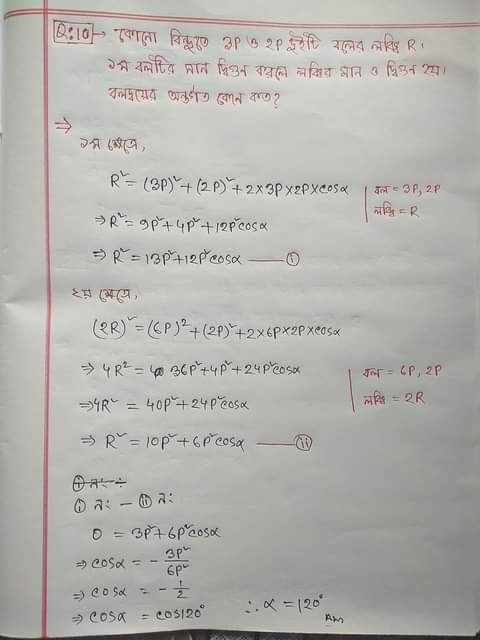 Q:10 → কোনো বিন্দুতে 3P ও 2P দুইটি বলের লব্ধি R।
১ম বলটির মান দ্বিগুন করলে লব্ধির মান ও দ্বিগুন হয়।
বলদ্বয়ের অন্তর্গত কোন কত?
⇒
১ম ক্ষেত্রে,
R² = (3P)² + (2P)² + 2×3P×2P×cosα
বল = 3P, 2P
লব্ধি = R
⇒ R² = 9P² + 4P² + 12P²cosα
⇒ R² = 13P² + 12P²cosα —— (i)
২য় ক্ষেত্রে,
(2R)² = (6P)² + (2P)² + 2×6P×2P×cosα
⇒ 4R² = 36P² + 4P² + 24P²cosα
বল = 6P, 2P
লব্ধি = 2R
⇒ 4R² = 40P² + 24P²cosα
⇒ R² = 10P² + 6P²cosα —— (ii)
(i) নং ÷
(i) নং − (ii) নং
0 = 3P² + 6P²cosα
⇒ cosα = − 3P²/6P²
⇒ cosα = − 1/2
⇒ cosα = cos120° ∴ α = 120°
Ans